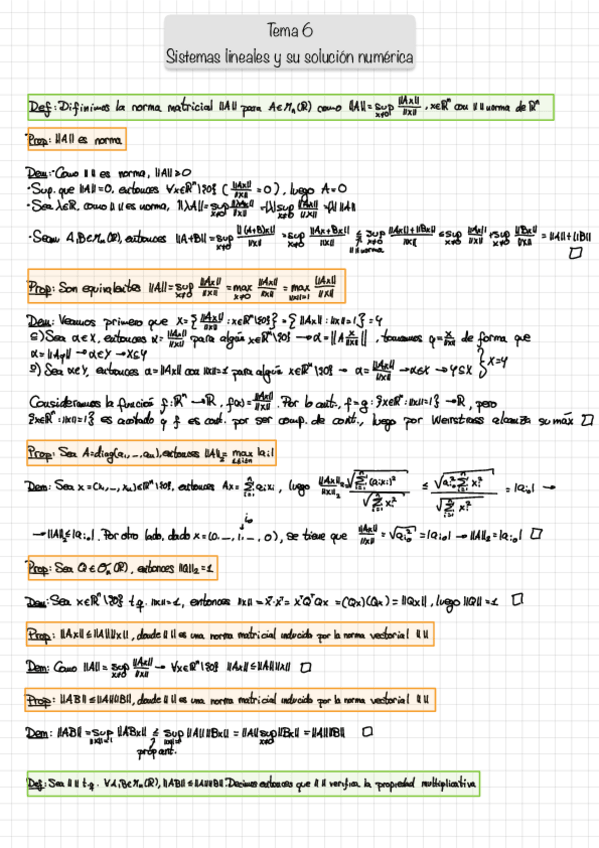 Tema 6
Sistemas lineales y su solución numérica
Def: Difinimos la norma matricial ||A|| para A∈Mₙ(ℝ) como ||A|| = sup_{x≠0} ||Ax||/||x||, x∈ℝⁿ con || || norma de ℝⁿ
Prop: ||A|| es norma
Dem: · Como || || es norma, ||A|| ≥ 0
· Sup. que ||A||=0, entonces ∀x∈ℝⁿ\{0} (||Ax||/||x|| = 0), luego A=0
· Sea λ∈ℝ, como || || es norma, ||λA|| = sup_{x≠0} ||λAx||/||x|| = |λ| sup_{x≠0} ||Ax||/||x|| = |λ| ||A||
· Sean A,B∈Mₙ(ℝ), entonces ||A+B|| = sup_{x≠0} ||(A+B)x||/||x|| = sup_{x≠0} ||Ax+Bx||/||x|| ≤ sup_{x≠0} ||Ax||+||Bx||/||x|| ≤ sup_{x≠0} ||Ax||/||x|| + sup_{x≠0} ||Bx||/||x|| = ||A||+||B||
|| || norma
□
Prop: Son equivalentes ||A|| = sup_{x≠0} ||Ax||/||x|| = max_{x≠0} ||Ax||/||x|| = max_{||x||=1} ||Ax||/||x||
Dem: Veamos primero que X = {||Ax||/||x|| : x∈ℝⁿ\{0}} = {||Ax|| : ||x||=1} = Y
⊆) Sea α∈X, entonces α = ||Ax||/||x|| para algún x∈ℝⁿ\{0} → α = ||A x/||x||||, tomamos y = x/||x|| de forma que
α = ||Ay|| → α∈Y → X⊆Y
⊇) Sea α∈Y, entonces α = ||Ax|| con ||x||=1 para algún x∈ℝⁿ\{0} → α = ||Ax||/||x|| → α∈X → Y⊆X } X=Y
Consideramos la función f: ℝⁿ → ℝ, f(x) = ||Ax||/||x||. Por lo ant., f = g: {x∈ℝⁿ : ||x||=1} → ℝ, pero
{x∈ℝⁿ : ||x||=1} es acotado y f es cont. por ser comp. de cont., luego por Weirstrass alcanza su máx □
Prop: Sea A=diag(a₁,…,aₙ), entonces ||A||₂ = max_{1≤i≤n} |aᵢ|
Dem: Sea x=(x₁,…,xₙ)∈ℝⁿ\{0}, entonces Ax = Σ_{i=1}^n aᵢxᵢ, luego ||Ax||₂/||x||₂ = √(Σ_{i=1}^n (aᵢxᵢ)²)/√(Σ_{i=1}^n xᵢ²) ≤ √(a_{i₀}² Σ_{i=1}^n xᵢ²)/√(Σ_{i=1}^n xᵢ²) = |a_{i₀}| →
i₀
→ ||A||₂ ≤ |a_{i₀}|. Por otro lado, dado x=(0,…,1,…,0), se tiene que ||Ax||/||x|| = √(a_{i₀}²) = |a_{i₀}| → ||A||₂ = |a_{i₀}| □
Prop: Sea Q∈Oₙ(ℝ), entonces ||Q||₂ = 1
Dem: Sea x∈ℝⁿ\{0} t.q. ||x||=1, entonces ||x|| = xᵗ·x = xᵗQᵗQx = (Qx)(Qx) = ||Qx||, luego ||Q|| = 1 □
Prop: ||Ax|| ≤ ||A|| ||x||, donde || || es una norma matricial inducida por la norma vectorial || ||
Dem: Como ||A|| = sup_{x≠0} ||Ax||/||x|| → ∀x∈ℝⁿ\{0} ||Ax|| ≤ ||A|| ||x|| □
Prop: ||AB|| ≤ ||A|| ||B||, donde || || es una norma matricial inducida por la norma vectorial || ||
Dem: ||AB|| = sup_{||x||=1} ||ABx|| ≤ sup_{||x||=1} ||A|| ||Bx|| = ||A|| sup_{x≠0} ||Bx|| = ||A|| ||B|| □
prop ant.
Def: Sea || || t.q. ∀A,B∈Mₙ(ℝ), ||AB|| ≤ ||A|| ||B||. Decimos entonces que || || verifica la propiedad multiplicativa